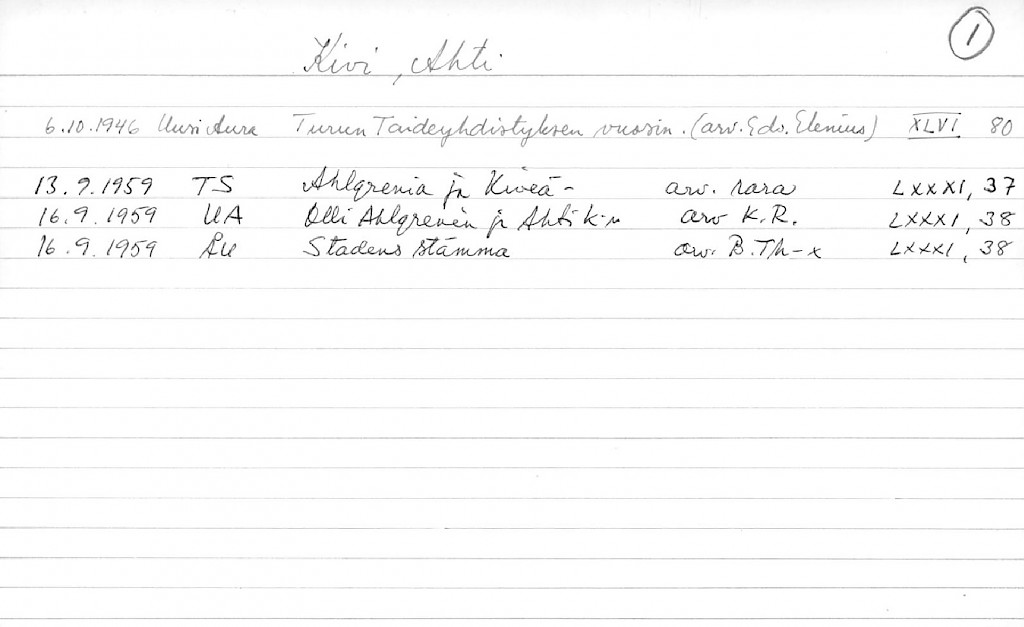 1
Kivi, Ahti
6.10.1946 Uusi Aura Turun Taideyhdistyksen vuosin. (arv. Edv. Elenius) XLVI 80
13.9.1959 TS Ahlgrenia ja Kiveä- arv. rara LXXXI, 37
16.9.1959 UA Olli Ahlgrenin ja Ahti k:n arv K.R. LXXXI, 38
16.9.1959 ÅU Stadens stämma arv. B.Th-x LXXXI, 38